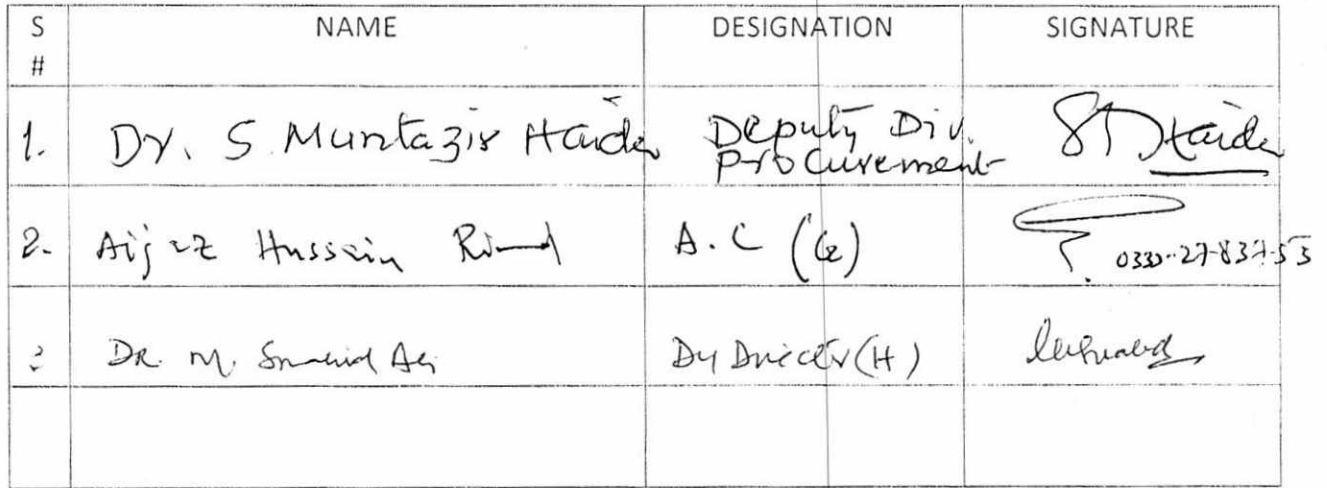 S # NAME DESIGNATION SIGNATURE
1. Dr. S. Muntazir Haider Deputy Div. Procurement Haider
2. Aijaz Hussain Rind A.C 0330-27-837-53
DR. M. Ali Dy Director (H)